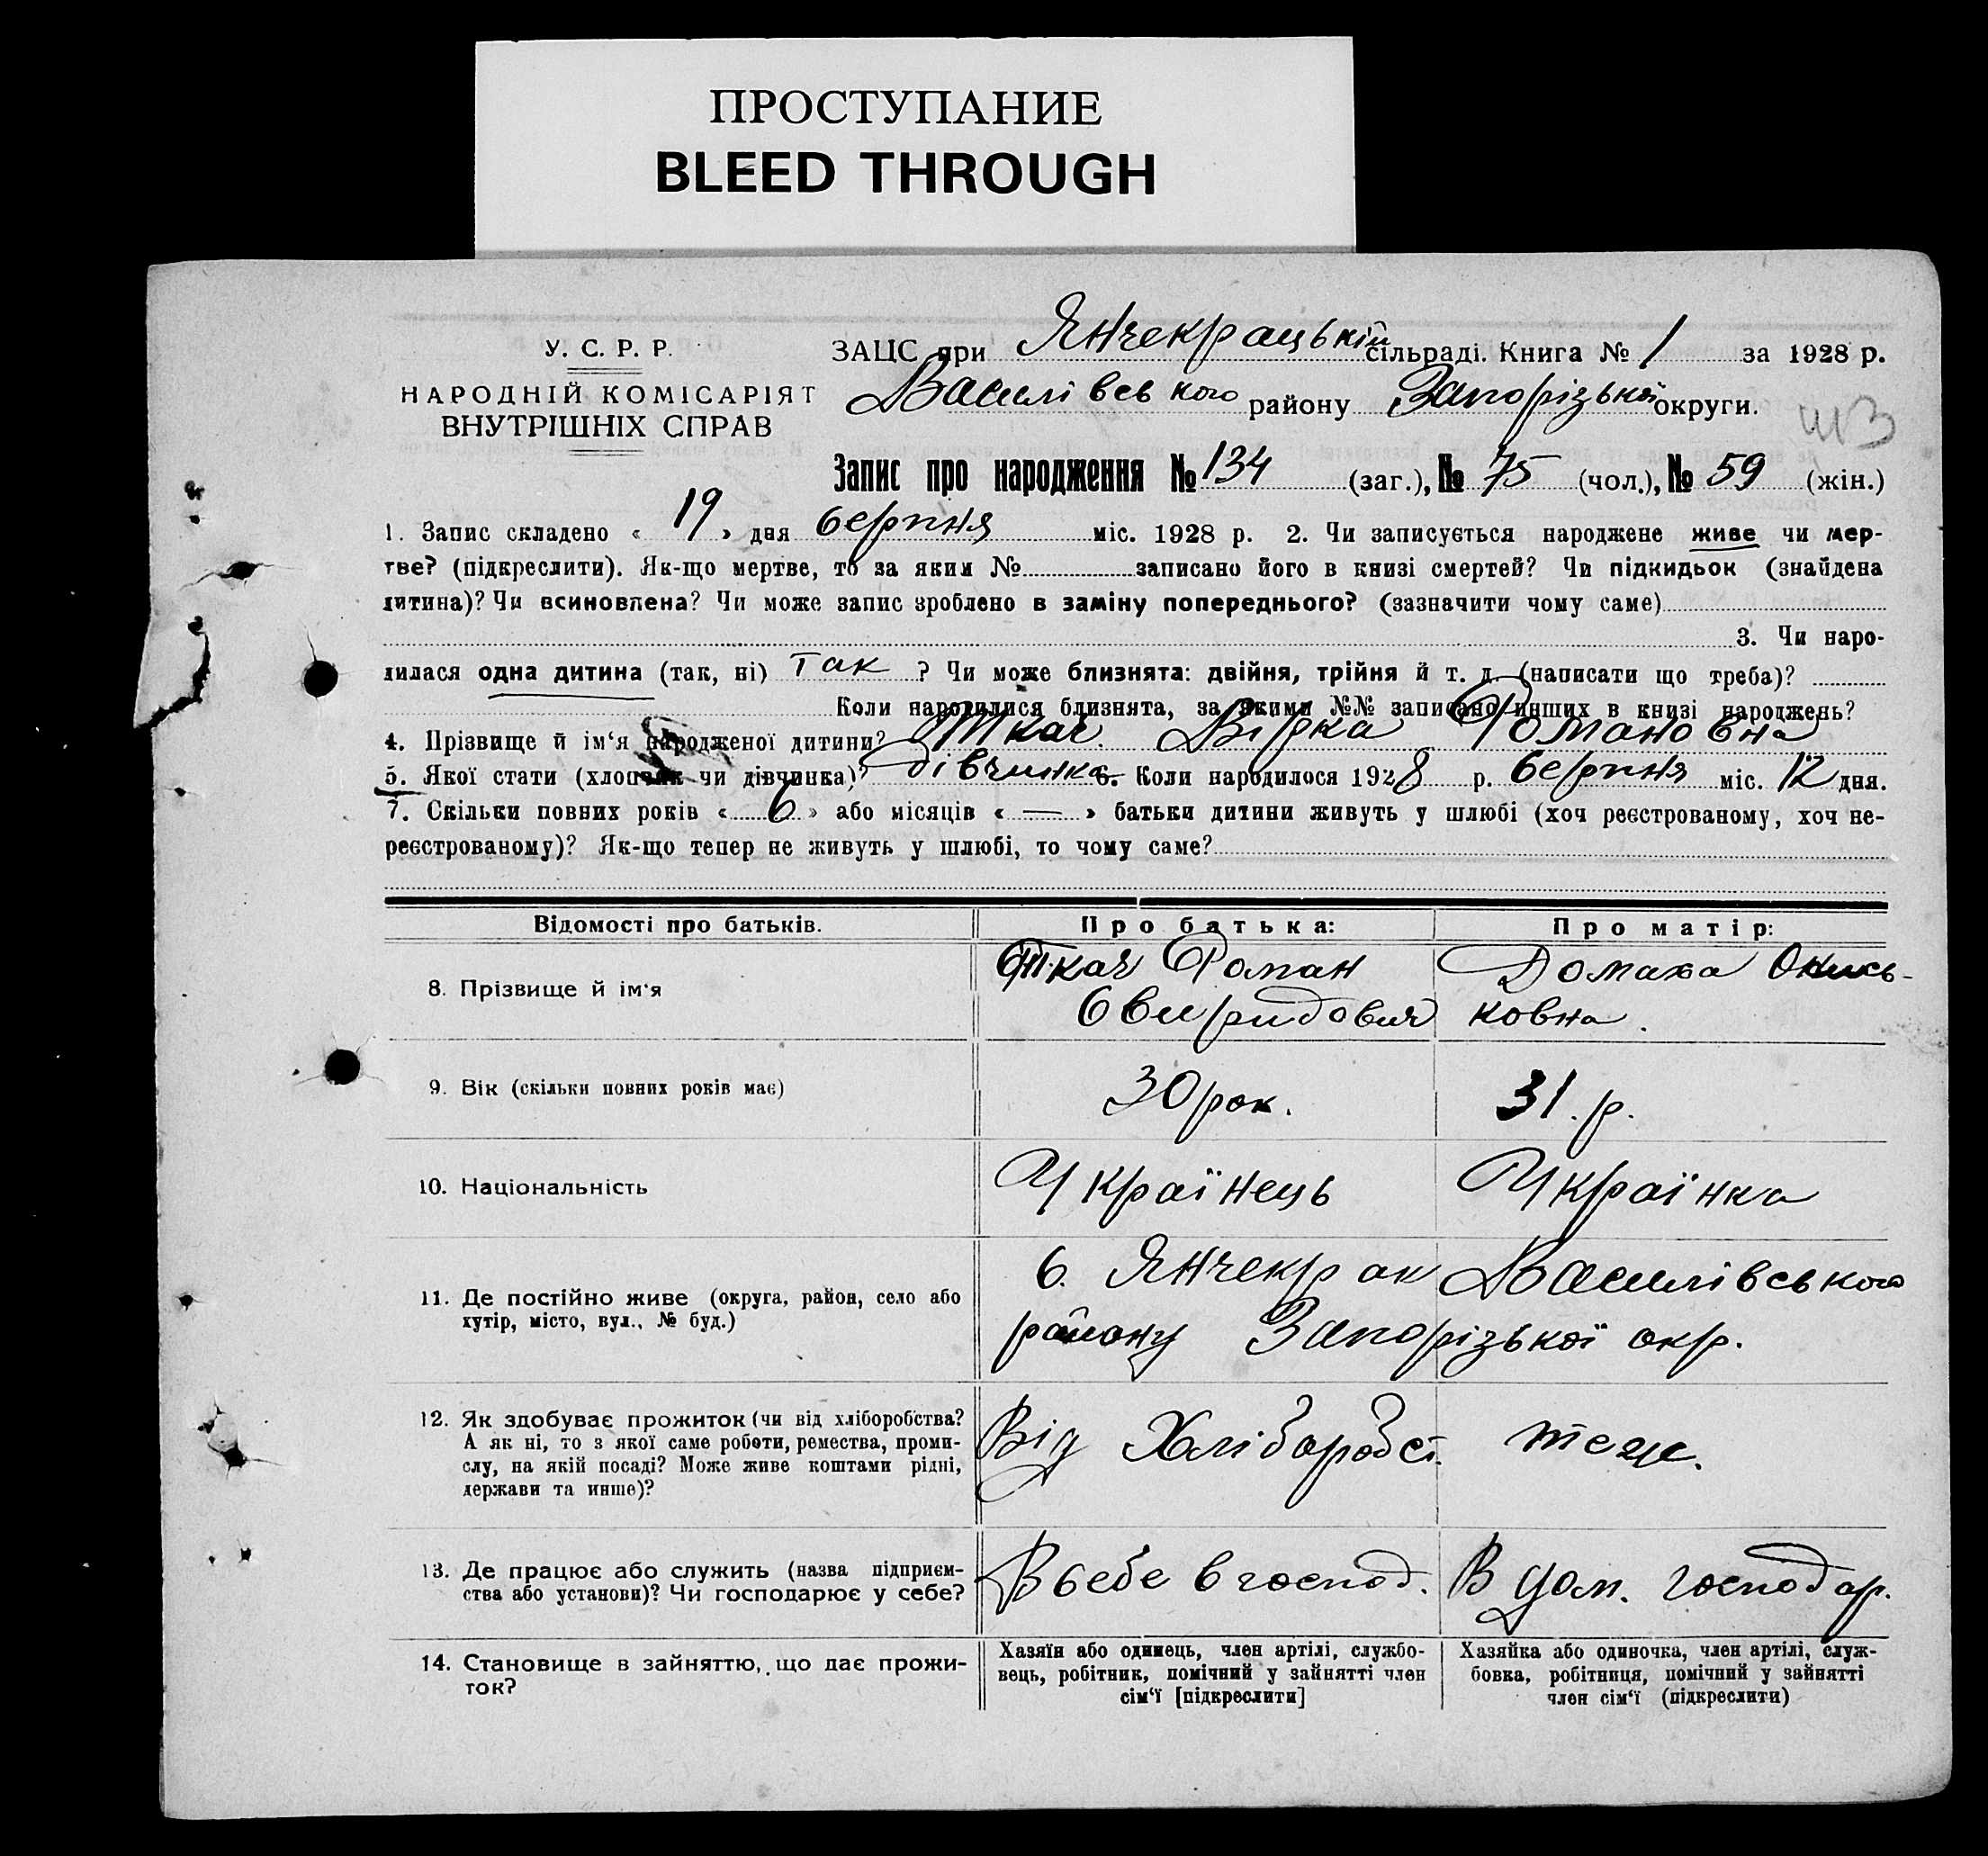 ПРОСТУПАНИЕ
BLEED THROUGH
У. С. Р. Р.
НАРОДНІЙ КОМІСАРІЯТ
ВНУТРІШНІХ СПРАВ
ЗАЦС при Янчекрацькій сільраді. Книга № 1 за 1928 р.
Василівського району Запорізької округи.
Запис про народження № 134 (заг.), № 75 (чол.), № 59 (жін.)
1. Запис складено « 19 » дня серпня міс. 1928 р. 2. Чи записується народжене живе чи мер-
тве? (підкреслити). Як-що мертве, то за яким № записано його в книзі смертей? Чи підкидьок (знайдена
дитина)? Чи всиновлена? Чи може запис зроблено в заміну попереднього? (зазначити чому саме)
3. Чи наро-
дилася одна дитина (так, ні) так ? Чи може близнята: двійня, трійня й т. д. (написати що треба)?
Коли народилися близнята, за якими №№ записано инших в книзі народжень?
4. Прізвище й ім‘я народженої дитини? Ткач Вірка Романовна
5. Якої стати (хлопчик чи дівчинка)? дівчинка 6. Коли народилося 1928 р. серпня міс. 12 дня.
7. Скільки повних років « 6 » або місяців « — » батьки дитини живуть у шлюбі (хоч реєстрованому, хоч не-
реєстрованому)? Як-що тепер не живуть у шлюбі, то чому саме?
Відомості про батьків. Про батька: Про матір:
8. Прізвище й ім‘я
Ткач Роман
Свиридович
Домаха
ковна.
9. Вік (скільки повних років має) 30 рок. 31. р.
10. Національність Українець Українка
11. Де постійно живе (округа, район, село або
хутір, місто, вул., № буд.)
с. Янчекрак Василівського
району Запорізької окр.
12. Як здобуває прожиток (чи від хліборобства?
А як ні, то з якої саме роботи, ремества, проми-
слу, на якій посаді? Може живе коштами рідні,
держави та инше)?
Від Хліборобст. теж.
13. Де працює або служить (назва підприєм-
ства або установи)? Чи господарює у себе?
В себе в господ. В дом. господар.
14. Становище в зайняттю, що дає прожи-
ток?
Хазяїн або одинець, член артілі, службо-
вець, робітник, помічний у зайнятті член
сім‘ї [підкреслити]
Хазяйка або одиночка, член артілі, служ-
бовка, робітниця, помічний у зайнятті
член сім‘ї (підкреслити)